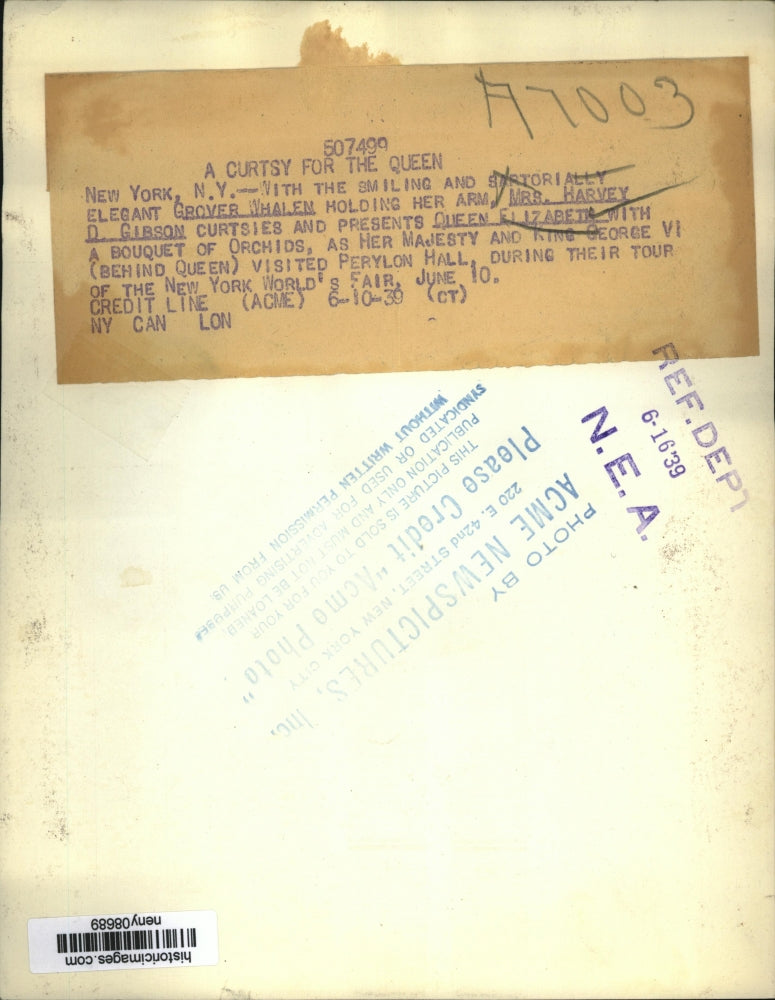 A7003
507499
A CURTSY FOR THE QUEEN
NEW YORK, N.Y.--WITH THE SMILING AND SARTORIALLY
ELEGANT GROVER WHALEN HOLDING HER ARM, MRS. HARVEY
D. GIBSON CURTSIES AND PRESENTS QUEEN ELIZABETH WITH
A BOUQUET OF ORCHIDS, AS HER MAJESTY AND KING GEORGE VI
(BEHIND QUEEN) VISITED PERYLON HALL, DURING THEIR TOUR
OF THE NEW YORK WORLD'S FAIR, JUNE 10.
CREDIT LINE (ACME) 6-10-39 (CT)
NY CAN LON
REF. DEPT
6-16'39
N. E. A.
PHOTO BY
ACME NEWSPICTURES, Inc.
220 E. 42nd STREET, NEW YORK CITY
Please Credit "Acme Photo"
THIS PICTURE IS SOLD TO YOU FOR YOUR
PUBLICATION ONLY AND MUST NOT BE LOANED,
SYNDICATED OR USED FOR ADVERTISING PURPOSES
WITHOUT WRITTEN PERMISSION FROM US.
historicimages.com
neny08689